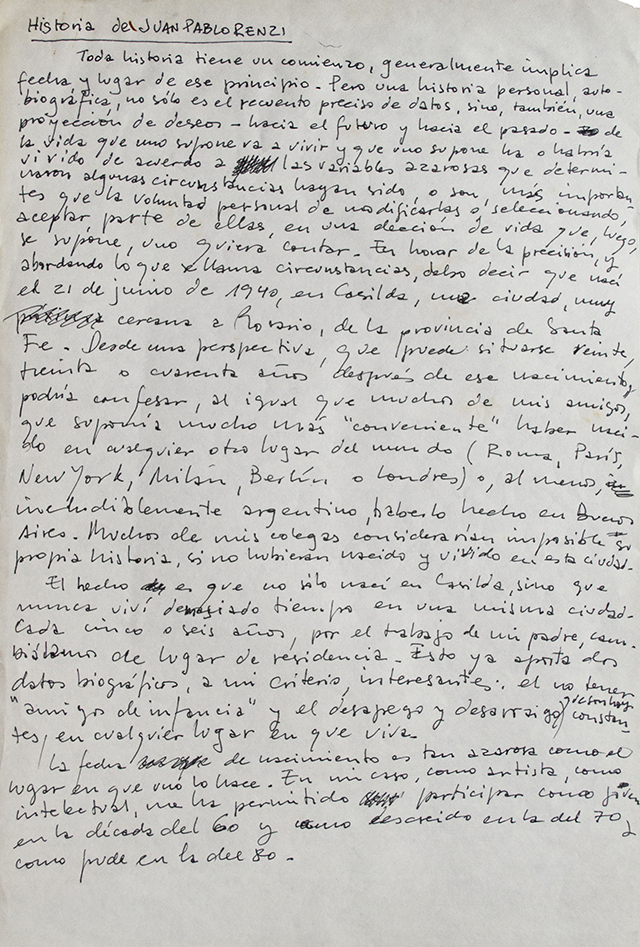 Historia de JUAN PABLO RENZI
Toda historia tiene un comienzo, generalmente implica
fecha y lugar de ese principio - Pero una historia personal, auto-
biográfica, no sólo es el recuento preciso de datos, sino, también, una
proyección de deseos - hacia el futuro y hacia el pasado - de
la vida que uno supone va a vivir y que uno supone ha o habría
vivido de acuerdo a las variables azarosas que determi-
naron algunas circunstancias hayan sido, o son, más importan-
tes que la voluntad personal de modificarlas o, seleccionando,
aceptar, parte de ellas, en una elección de vida que, luego,
se supone, uno quiera contar. En honor de la precisión, y
abordando lo que llama circunstancias, debo decir que nací
el 21 de junio de 1940, en Casilda, una ciudad, muy
cercana a Rosario, de la provincia de Santa
Fe - Desde una perspectiva, que puede situarse veinte,
treinta o cuarenta años después de ese nacimiento,
podría confesar, al igual que muchos de mis amigos,
que suponía mucho más "conveniente" haber naci-
do en cualquier otro lugar del mundo (Roma, París,
New York, Milán, Berlín o Londres) o, al menos,
ineludiblemente argentino, haberlo hecho en Buenos
Aires. Muchos de mis colegas considerarían imposible su
propia historia, si no hubieran nacido y vivido en esta ciudad -
El hecho es que no sólo nací en Casilda, sino que
nunca viví demasiado tiempo en una misma ciudad -
Cada cinco o seis años, por el trabajo de mi padre, cam-
biábamos de lugar de residencia - Esto ya aporta dos
datos biográficos, a mi criterio, interesantes: el no tener
"amigos de infancia" y el desapego y desarraigo constan-
tes, en cualquier lugar en que viva -
La fecha de nacimiento es tan azarosa como el
lugar en que uno lo hace. En mi caso, como artista, como
intelectual, me ha permitido participar como joven
en la década del 60 y como en la del 70 y
como pude en la del 80 -